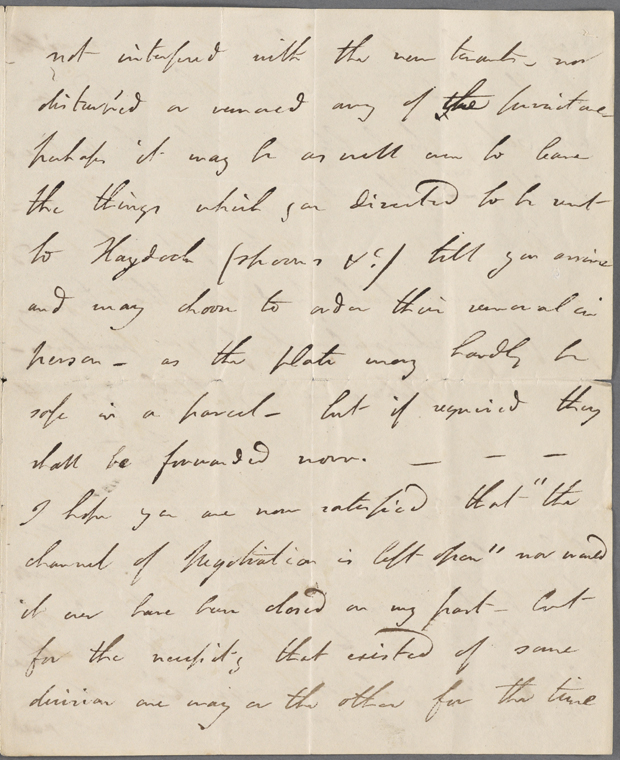 not interfered with the new tenants - nor
disturbed or removed any of the furniture
perhaps it may be as well even to leave
the things which you directed to be sent
to Haydock (spoons &c) till you arrive
and may choose to order their removal in
person - as the plate may hardly be
safe in a parcel - but if required they
shall be forwarded now. — — —
I hope you are now satisfied that "the
channel of Negotiation is left open" nor would
it ever have been closed on my part - but
for the necessity that existed of some
division one way or the other for the time